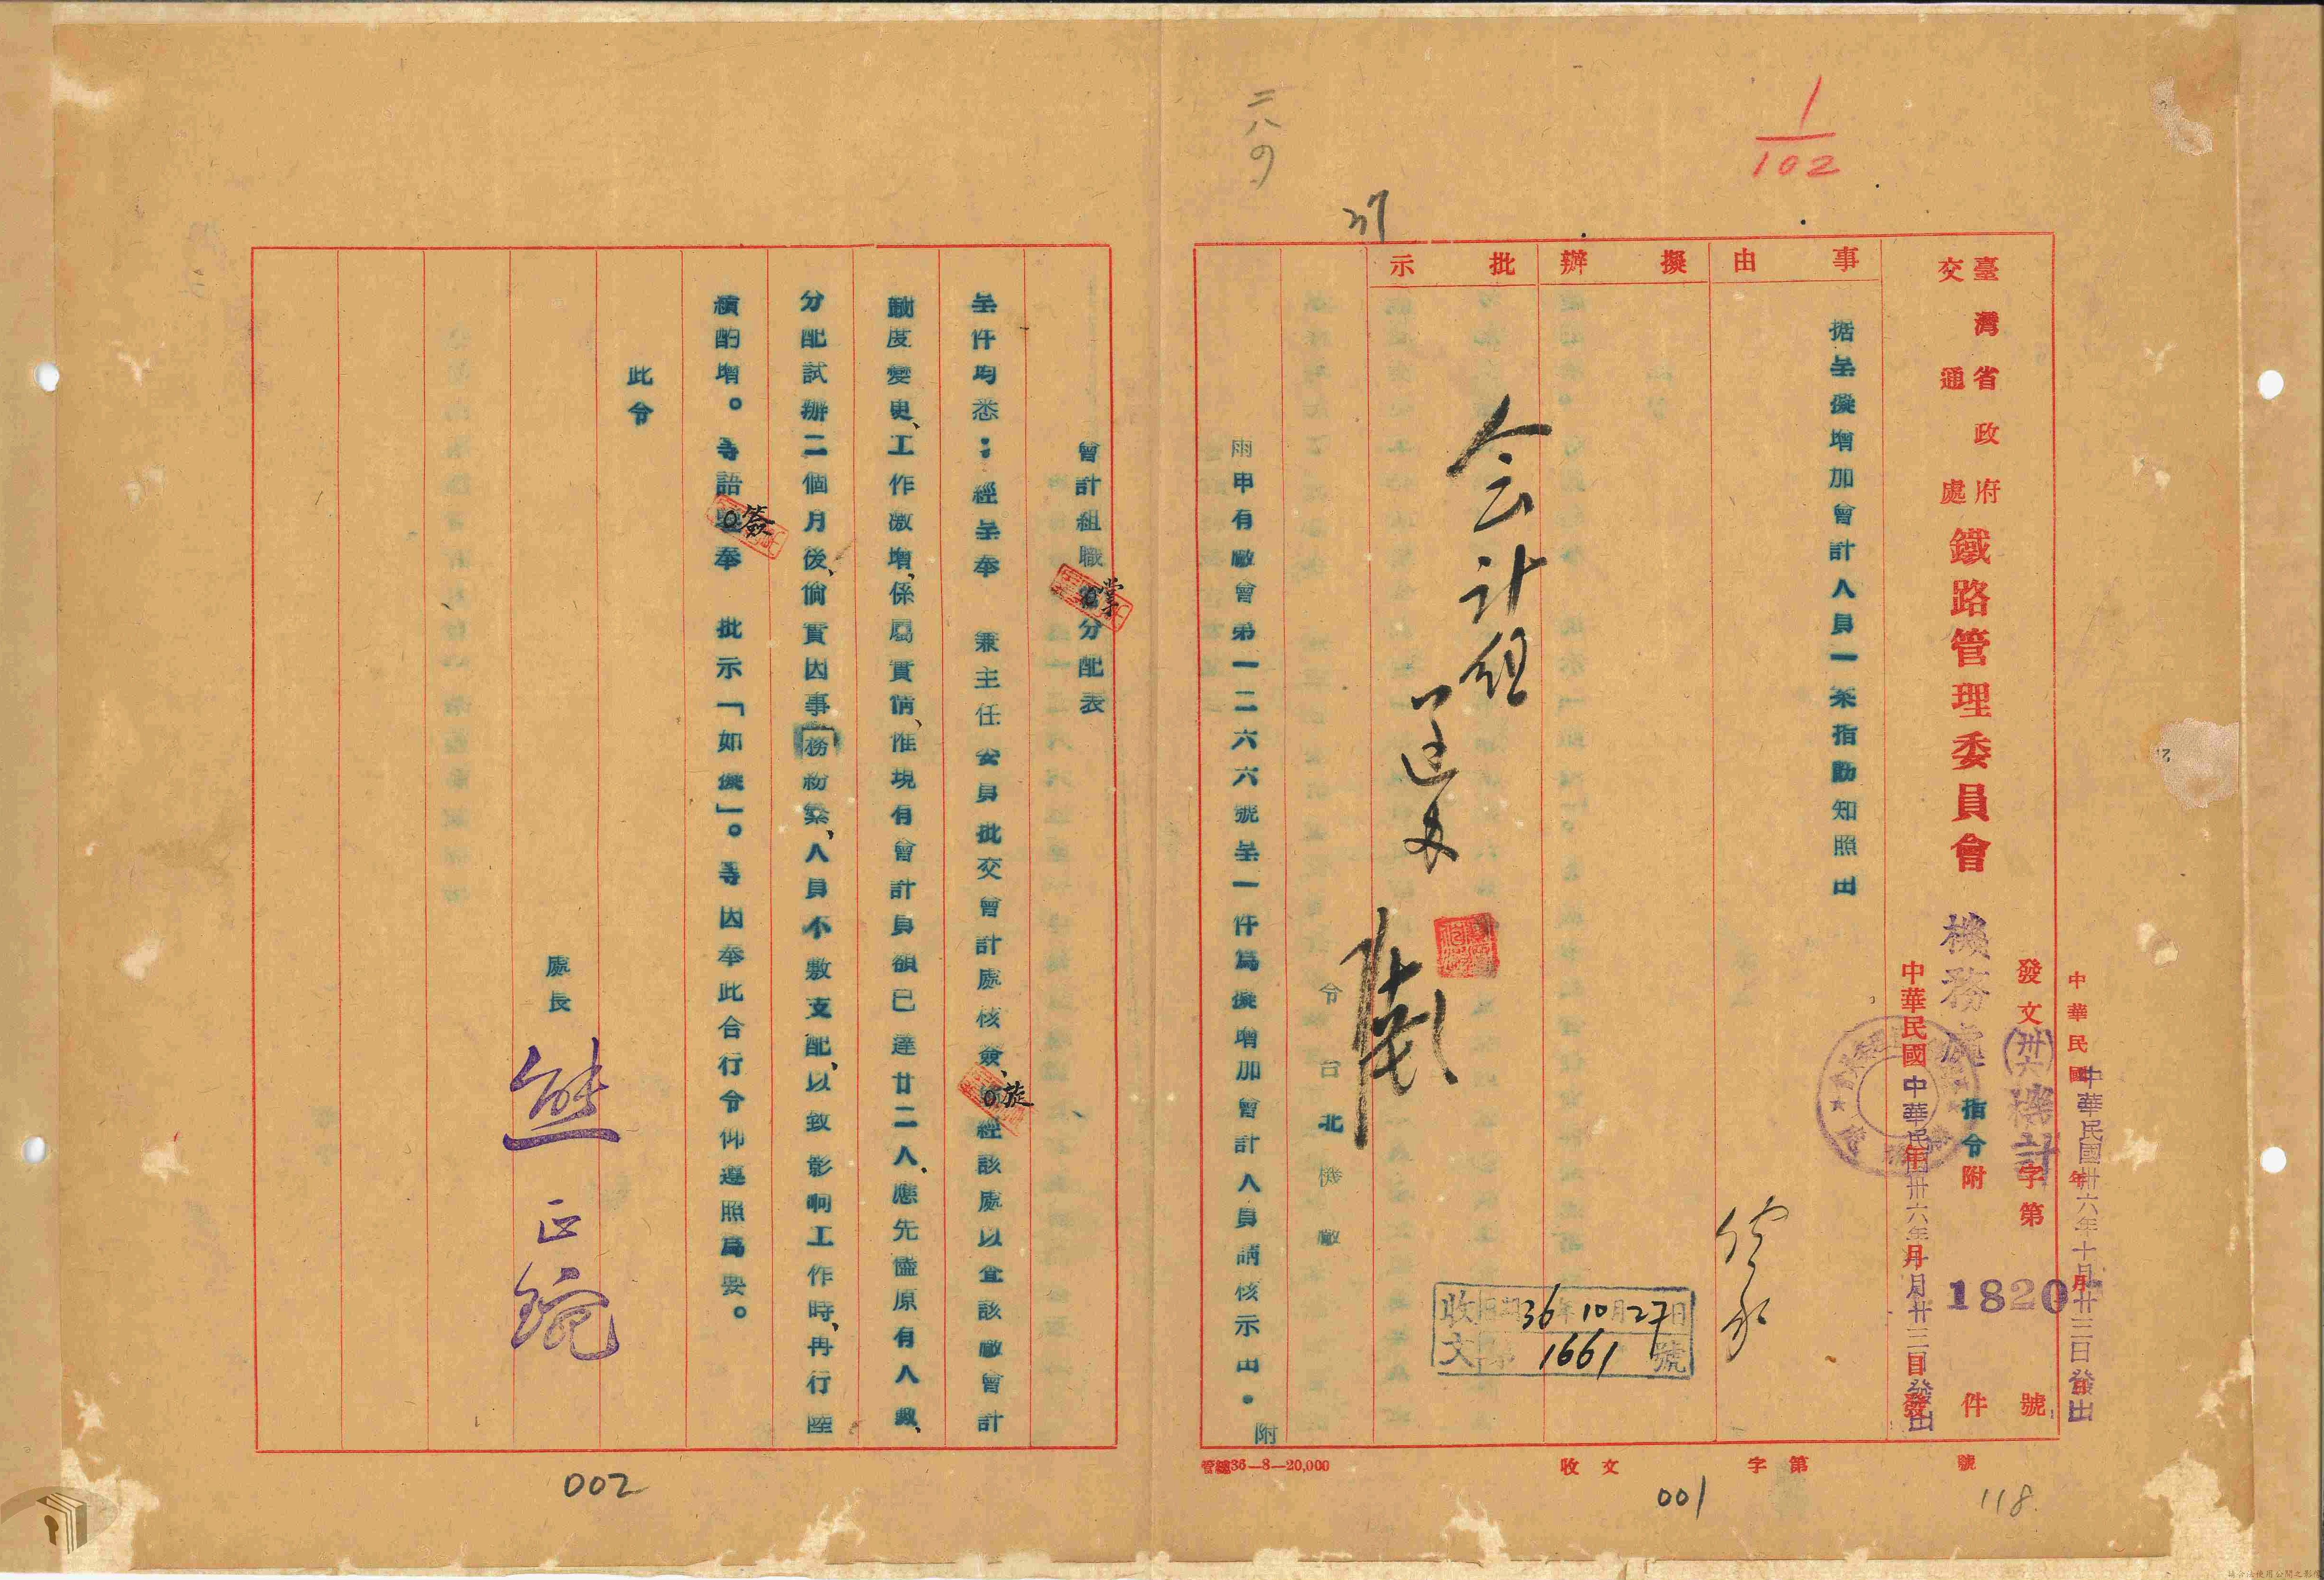 1/102
二八の
37
臺灣省政府交通處
鐵路管理委員會
機務處
指令
附件
發文
(卅六)機計字第1820號
中華民國 年 月 日
中華民國卅六年十月廿三日發出
中華民國 年 月 日發
中華民國卅六年十月廿三日發出
事由
据呈擬增加會計人員一案指飭知照由
擬辦
批示
会计组
收文
日期36年10月27日
第1661號
令台北機廠
兩申有廠會第一二六六號呈一件為擬增加會計人員請核示由。附
會計組職掌分配表
呈件均悉：經呈奉 兼主任委員批交會計處核簽、旋經該處以查該廠會計
制度變更、工作激增、係屬實情、惟現有會計員額已達廿二人、應先儘原有人數、
分配試辦二個月後、倘實因事務紛繁、人員不敷支配、以致影响工作時、再行陸
續酌增。等語簽奉 批示「如擬」。等因奉此合行令仰遵照為要。
此令
處長
熊正琬
管總36—8—20,000
收文 字第 號
001
118
002